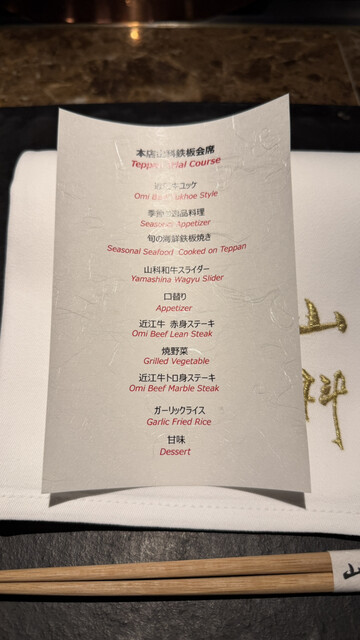 本店山科鉄板会席
Course
近江牛ユッケ
Omi Style
季節の逸品料理
Seasonal Appetizer
旬の海鮮鉄板焼き
Seasonal Seafood Cooked on Teppan
山科和牛スライダー
Yamashina Wagyu Slider
口替り
Appetizer
近江牛 赤身ステーキ
Omi Beef Lean Steak
焼野菜
Grilled Vegetable
近江牛トロ身ステーキ
Omi Beef Marble Steak
ガーリックライス
Garlic Fried Rice
甘味
Dessert
山
科
山